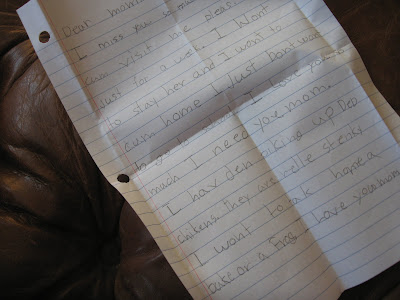 Dear mama
I miss you so
cum visit me pleas
Just for a week. I Want
to stay her and I want to
cum home I Just Don't want
I Love you so
much I need you mom.
I hav ben piking up Ded
chikens they are relle steinky
I want to brik home a
or a Frog Love you mom